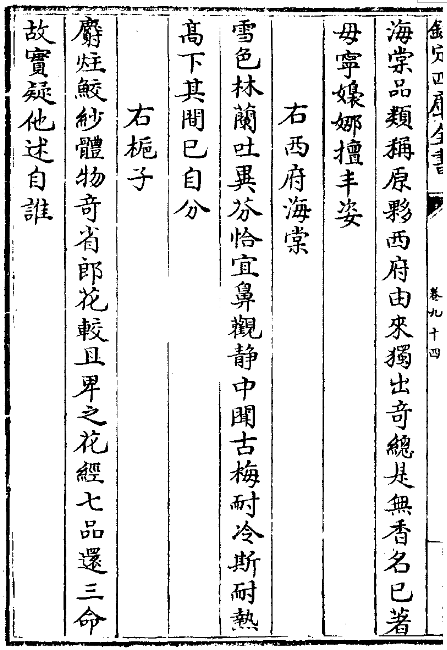 欽定四庫全書
卷九十四
海棠品類稱原夥西府由來獨出奇總是無香名已著
毋寧嬝娜擅丰姿
右西府海棠
雪色林蘭吐異芬恰宜鼻觀静中聞古梅耐冷斯耐熱
髙下其間已自分
右梔子
麝炷鮫紗體物奇省郎花較且卑之花經七品還三命
故實疑他述自誰